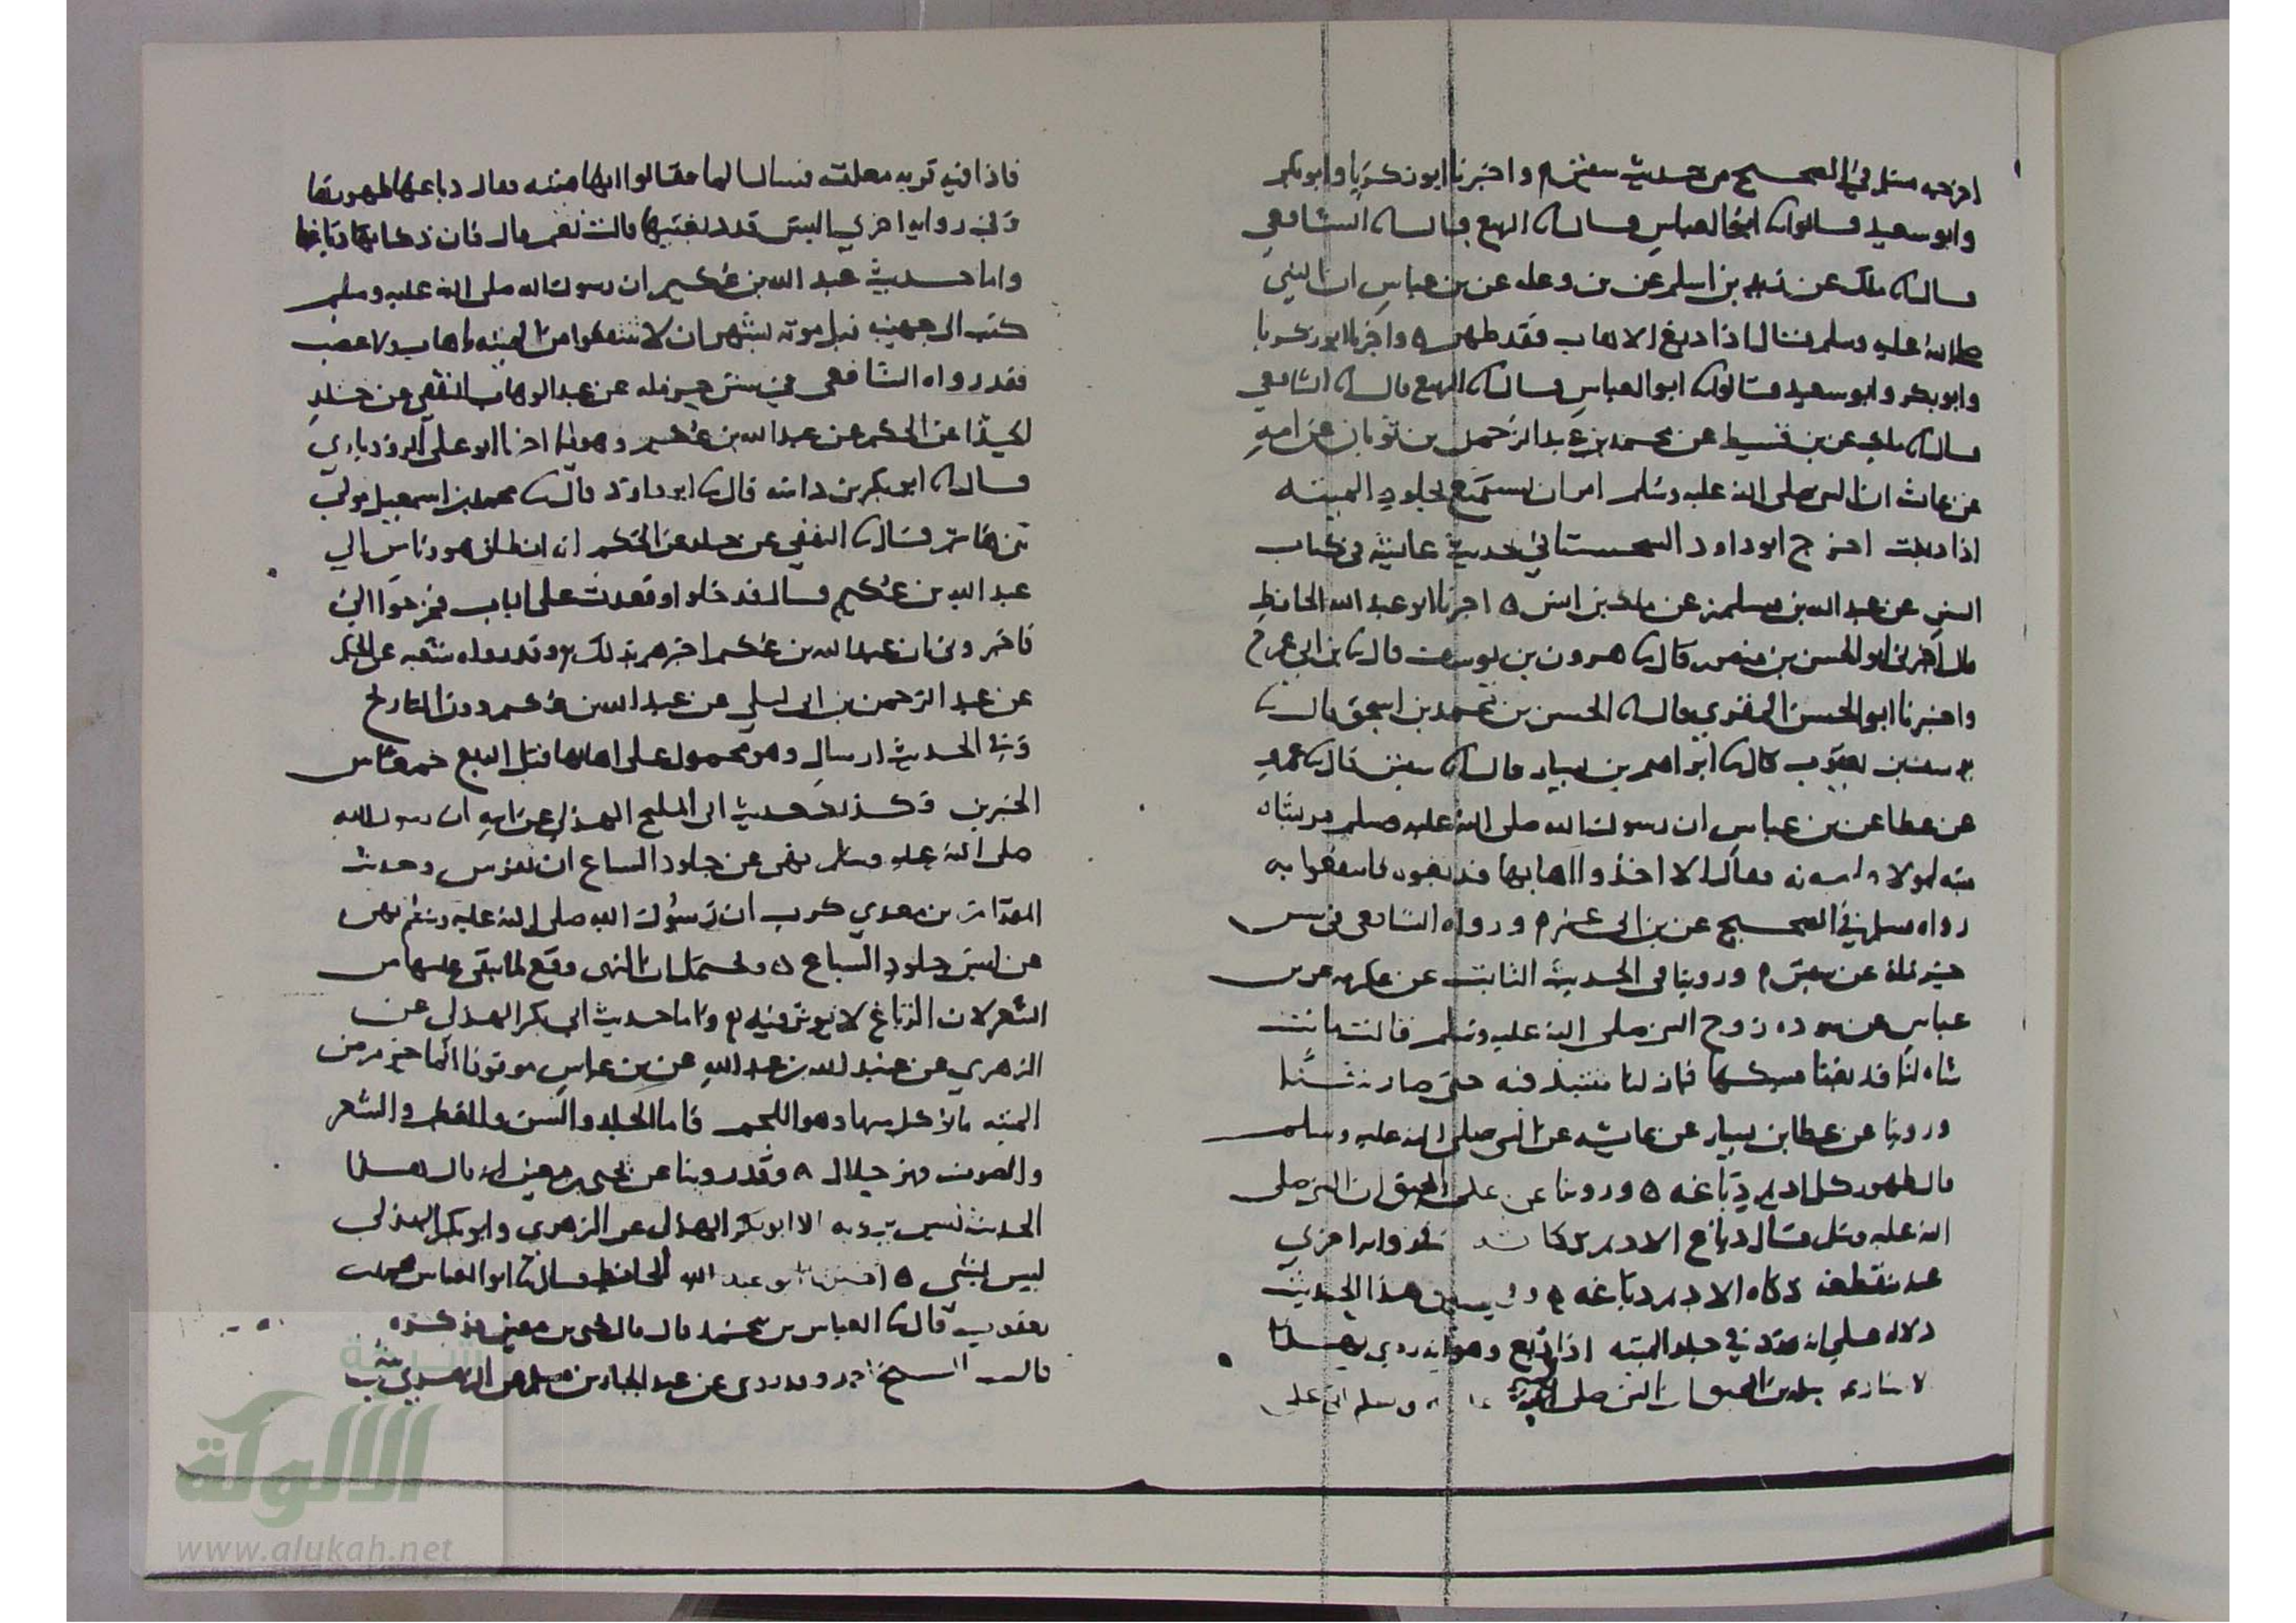 اخرجه مسلم في الصحيح من حديث سفين واخبرنا ابو زكريا وابو بكر
وابو سعيد قالوا ابو العباس قال الربيع قال الشافعي
قال ملك عن زيد بن اسلم عن بن وعله عن بن عباس ان النبي
صلى الله عليه وسلم قال اذا دبغ الاهاب فقد طهر ه واخبرنا ابو زكريا
وابو بكر وابو سعيد قالوا ابو العباس قال الربيع قال الشافعي
قال ملك عن بن قسيط عن محمد بن عبد الرحمن بن ثوبان عن امه
عن عائشه ان النبي صلى الله عليه وسلم امر ان يستمتع بجلود الميته
اذا دبغت اخرج ابو داود السجستاني حديث عايشه في كتاب
السنن عن عبد الله بن مسلمه عن ملك بن انس ه اخبرنا ابو عبد الله الحافظ
قال اخبرني ابو الحسن بن منصور قال هرون بن يوسف قال بن ابي عمر ح
واخبرنا ابو الحسن المقري قال الحسن بن محمد بن اسحق قال
يوسف بن يعقوب قال ابراهيم بن بشار قال سفين قال عمرو
عن عطا عن بن عباس ان رسول الله صلى الله عليه وسلم مر بشاه
ميته لمولاه ميمونه فقال الا اخذوا اهابها فدبغوه فانتفعوا به
رواه مسلم في الصحيح عن بن ابي عمر ورواه الشافعي في سنن
حرمله عن سفين وروينا في الحديث الثابت عن عكرمه عن بن
عباس عن سوده زوج النبي صلى الله عليه وسلم قالت ماتت
شاه لنا فدبغنا مسكها فما زلنا ننتبذ فيه حتى صار شنا
وروينا عن عطا بن يسار عن عايشه عن النبي صلى الله عليه وسلم
قال طهور كل اديم دباغه ه وروينا عن سلمه بن المحبق ان النبي صلى
الله عليه وسلم قال دباغ الاديم ذكاته وفي روايه اخري
عنه منقطعه ذكاه الاديم دباغه وفي هذا الحديث
دلاله على انه ورد في جلد الميته اذا دبغ وهو انه روي في هذا
سلمه بن المحبق ان النبي صلى الله عليه وسلم اتى على
فاذا فيه قربه معلقه فسال الما فقالوا انها ميته فقال دباغها طهورها
وفي روايه اخري اليس قد دبغتيها قالت نعم قال فان ذكاتها دباغها
واما حديث عبد الله بن عكيم ان رسول الله صلى الله عليه وسلم
كتب الى جهينه قبل موته بشهر ان لا تنتفعوا من الميته باهاب ولا عصب
فقد رواه الشافعي في سنن حرمله عن عبد الوهاب الثقفي عن خالد
الحذا عن الحكم عن عبد الله بن عكيم وهو فيما اخبرنا ابو علي الروذباري
قال ابو بكر بن داسه قال ابو داود قال محمد بن اسمعيل مولى
بني هاشم قال الثقفي عن خالد عن الحكم انه انطلق هو وناس الي
عبد الله بن عكيم قال فدخلوا وقعدت على الباب فخرجوا الي
فاخبروني ان عبد الله بن عكيم اخبرهم بذلك وقد رواه شعبه عن الحكم
عن عبد الرحمن بن ابي ليلي عن عبد الله بن عكيم دون التاريخ
وفي الحديث ارسال وهو محمول على اهابها قبل الدبغ جمعا بين
الخبرين وكذلك حديث ابي المليح الهذلي عن ابيه ان رسول الله
صلى الله عليه وسلم نهى عن جلود السباع ان تفترش وحديث
المقدام بن معدي كرب ان رسول الله صلى الله عليه وسلم نهى
عن لبس جلود السباع ه ويحتمل ان النهي وقع لما يبقى عليها من
الشعر لان الدباغ لا يوثر فيه واما حديث ابي بكر الهذلي عن
الزهري عن عبيد الله بن عبد الله عن بن عباس موقوفا انما حرم من
الميته ما يوكل منها وهو اللحم فاما الجلد والسن والعظم والشعر
والصوف فهو حلال ه وقد روينا عن يحيى بن معين انه قال هذا
الحديث ليس يرويه الا ابو بكر الهذلي عن الزهري وابو بكر الهذلي
ليس بشي ه اخبرنا ابو عبد الله الحافظ قال ابو العباس محمد بن
يعقوب قال العباس بن محمد قال قال يحيى بن معين فذكره
قال الشيخ احمد وقد روي عن عبد الجبار بن مسلم عن الزهري
شبكة
الألوكة
www.alukah.net